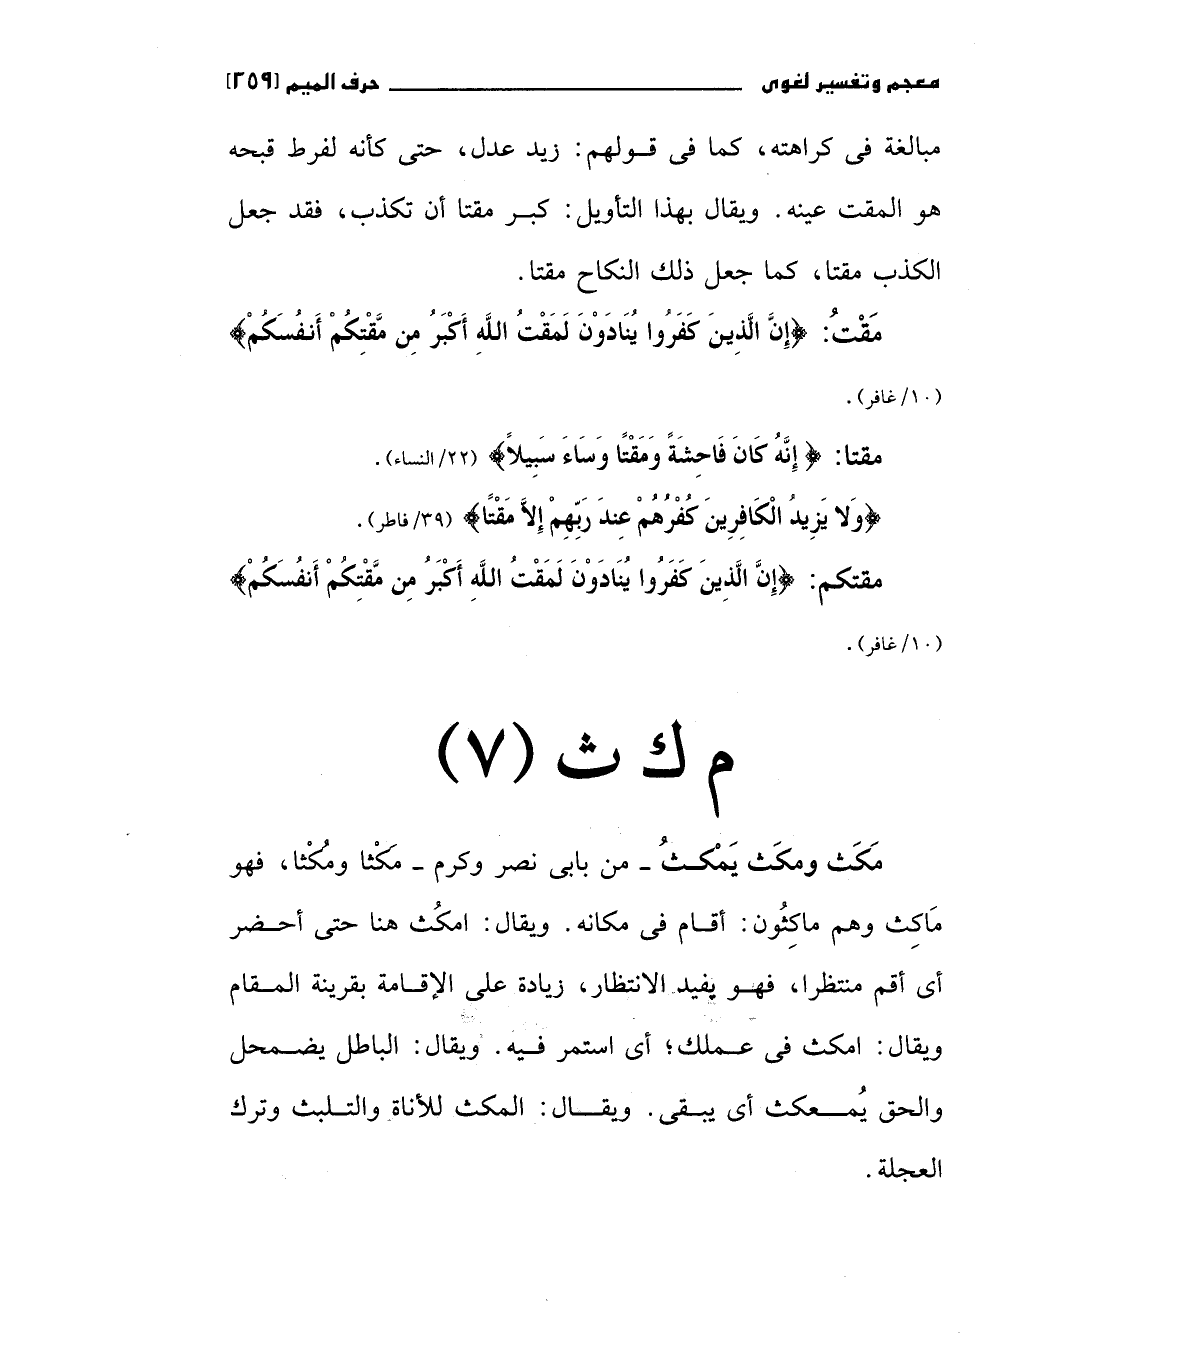 معجم وتفسير لغوى ـــــــــــــــــ حرف الميم [٢٥٩]
مبالغة فى كراهته، كما فى قـولهم: زيد عدل، حتى كأنه لفرط قبحه
هو المقت عينه. ويقال بهذا التأويل: كبـر مقتا أن تكذب، فقد جعل
الكذب مقتا، كما جعل ذلك النكاح مقتا.
مَقْتُ: ﴿إِنَّ الَّذِينَ كَفَرُوا يُنَادَوْنَ لَمَقْتُ اللَّهِ أَكْبَرُ مِن مَّقْتِكُمْ أَنفُسَكُمْ﴾
(١٠/ غافر).
مقتا: ﴿ إِنَّهُ كَانَ فَاحِشَةً وَمَقْتًا وَسَاءَ سَبِيلاً﴾ (٢٢/ النساء).
﴿وَلا يَزِيدُ الْكَافِرِينَ كُفْرُهُمْ عِندَ رَبِّهِمْ إِلاَّ مَقْتًا﴾ (٣٩/ فاطر).
مقتكم: ﴿إِنَّ الَّذِينَ كَفَرُوا يُنَادَوْنَ لَمَقْتُ اللَّهِ أَكْبَرُ مِن مَّقْتِكُمْ أَنفُسَكُمْ﴾
(١٠/ غافر).
م ك ث (٧)
مَكَث ومكَث يَمْكـثُ ـ من بابى نصر وكرم ـ مَكْثا ومُكْثا، فهو
مَاكِث وهم ماكِثُون: أقـام فى مكانه. ويقال: امكُث هنا حتى أحـضر
أى أقم منتظرا، فهـو يفيد الانتظار، زيادة على الإقـامة بقرينة المـقام
ويقال: امكث فى عـملك؛ أى استمر فـيه. ويقال: الباطل يضـمحل
والحق يُمـعكث أى يبقى. ويقـال: المكث للأناة والتـلبث وترك
العجلة.